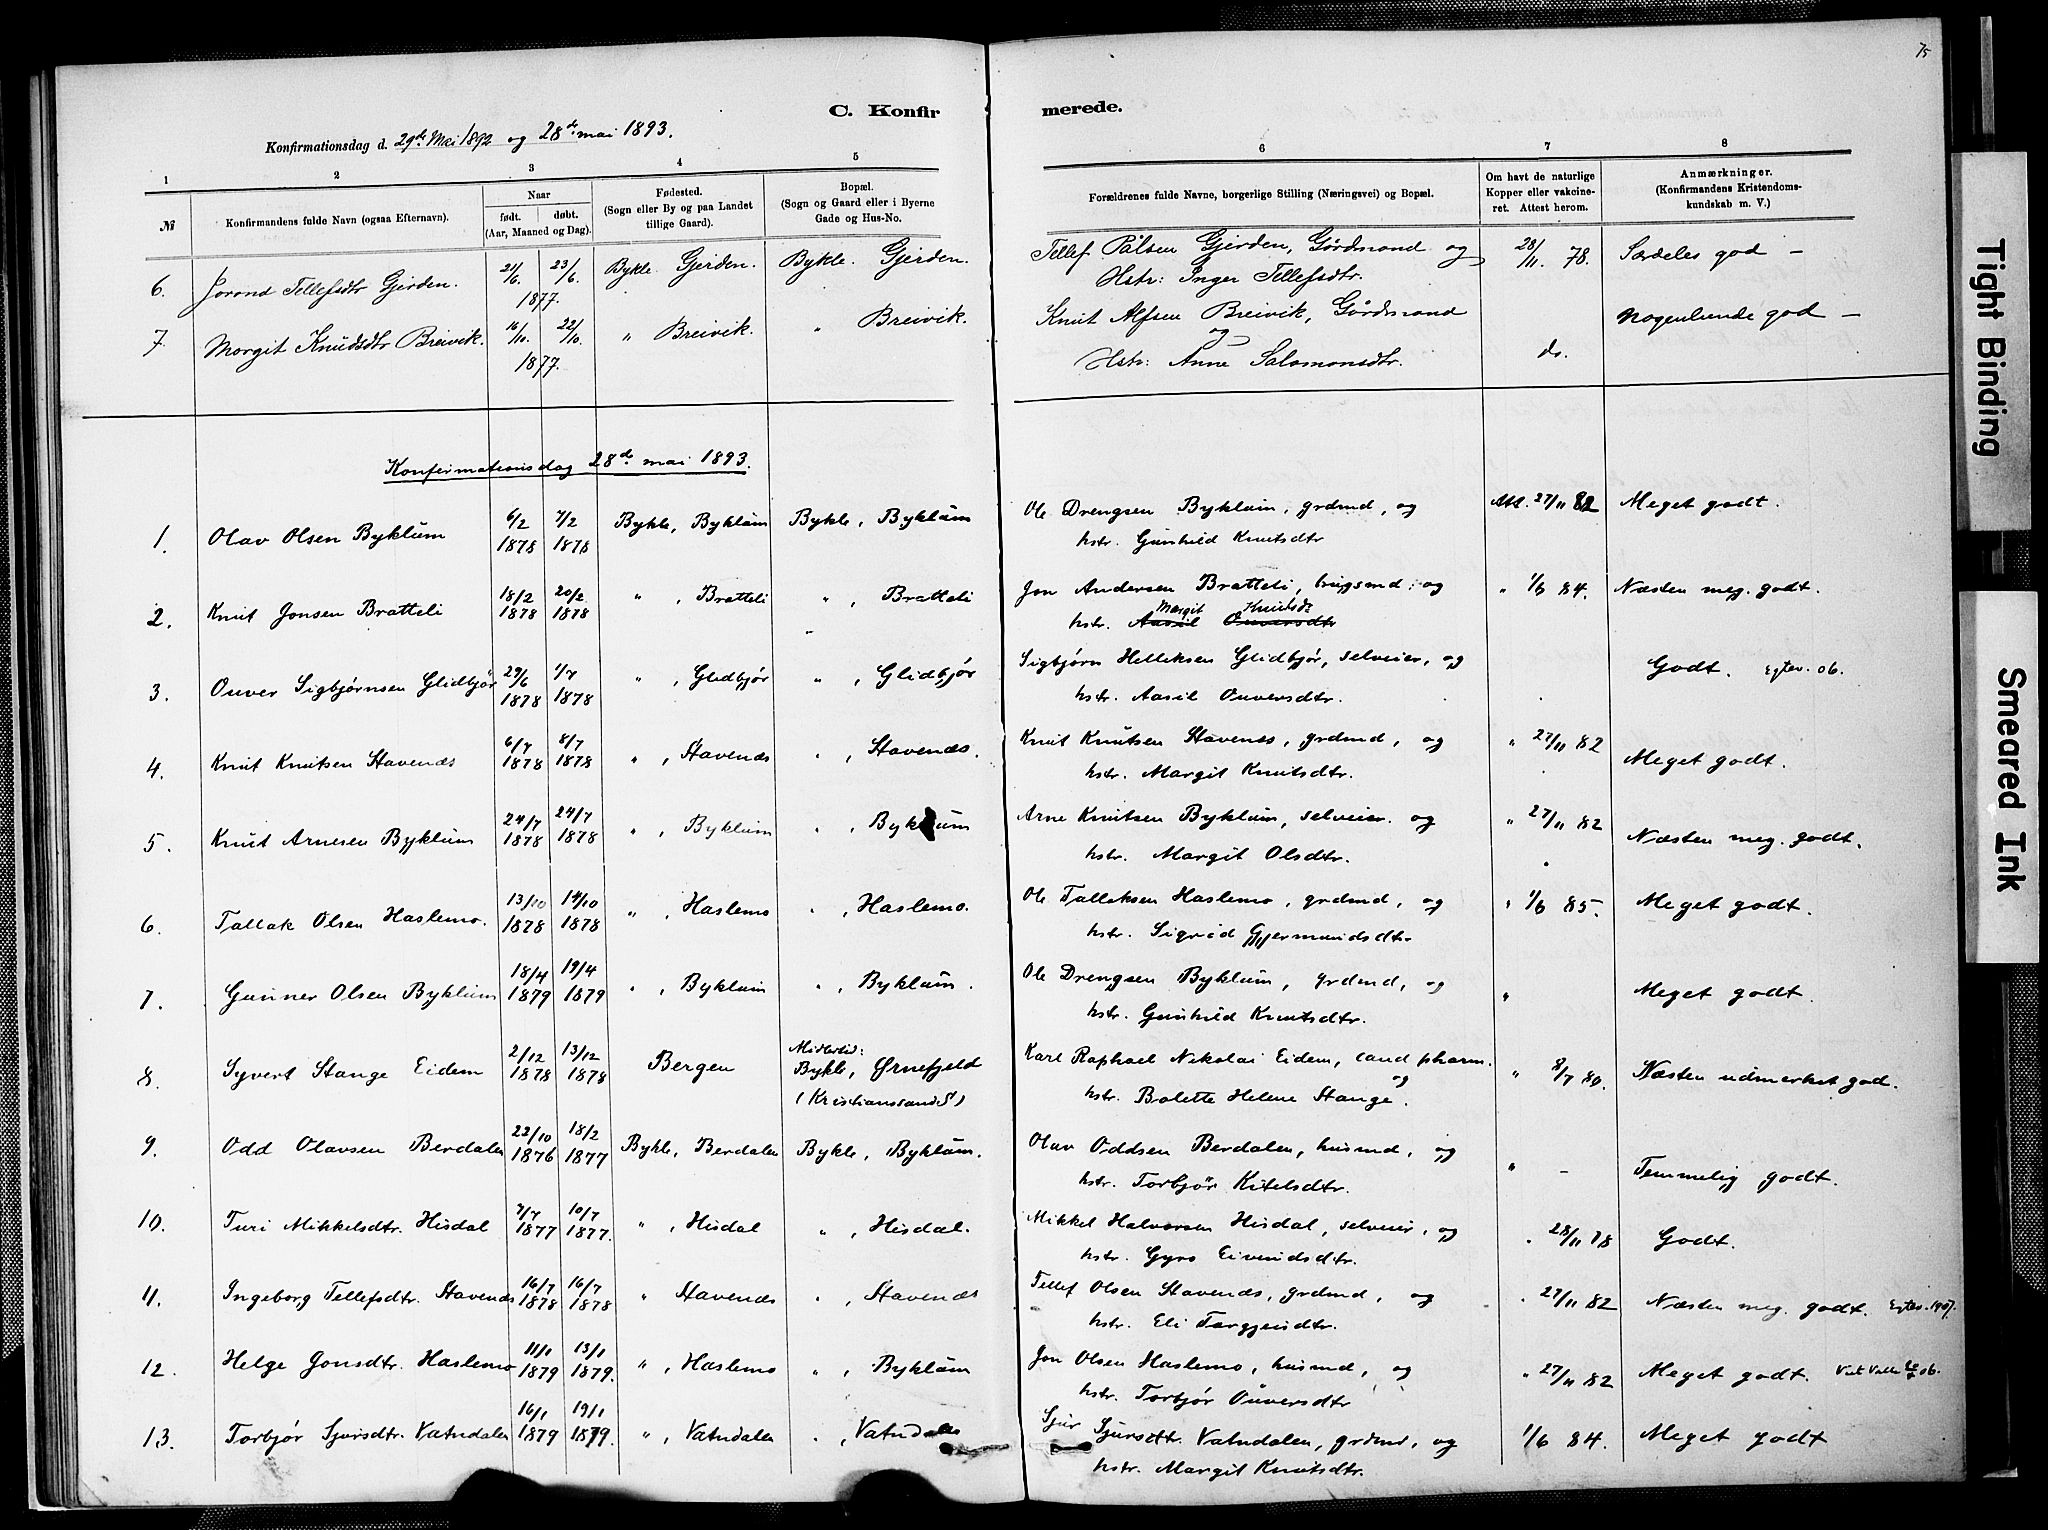 75
C. Konfirmerede.
Konfirmationsdag d. 29de Mai 1892 og 28de mai 1893.
1 2 3 4 5 6 7 8
№ Konfirmandens fulde Navn (ogsaa Efternavn). Naar født. døbt. (Aar, Maaned og Dag). Fødested. (Sogn eller By og paa Landet tillige Gaard). Bopæl. (Sogn og Gaard eller i Byerne Gade og Hus-No. Forældrenes fulde Navne, borgerlige Stilling (Næringsvei) og Bopæl. Om havt de naturlige Kopper eller vakcineret. Attest herom. Anmærkninger. (Konfirmandens Kristendomskundskab m. V.)
6. Jorond Tellefsdtr Gjerden. 21/6. 23/6. 1877. Bykle. Gjerden. Bykle. Gjerden. Tellef Pålsen Gjerden, Gårdmand og 28/11. 78. Særdeles god –
Hstr: Inger Tellefsdtr.
7. Margit Knudsdtr Breivik. 16/10. 22/10. 1877. " Breivik. " Breivik. Knut Alfsen Breivik, Gårdmand nogenlunde god –
og
Hstr: Anne Salomonsdtr. do.
Konfirmationsdag 28de mai 1893.
1. Olav Olsen Byklum 6/2 1878 7/2 1878 Bykle, Byklum Bykle, Byklum Ole Drengsen Byklum, grdmd, og Att. 27/11 82 Meget godt.
hstr. Gunhild Knutsdtr
2. Knut Jonsen Bratteli 18/2 1878 20/2 1878 " , Bratteli " , Bratteli Jon Andersen Bratteli, brugsmd. og " 1/6 84. Næsten meg. godt.
Margit Knutsdr
hstr. Aasil Ouversdtr
3. Ouver Sigbjørnsen Glidbjør 29/6 1878 1/7 1878 " , Glidbjør " , Glidbjør Sigbjørn Helleksen Glidbjør, selveier, og Godt. Egtev. 06.
hstr. Aasil Ouversdtr.
4. Knut Knutsen Stavenes 6/7 1878 8/7 1878 " , Stavenes " , Stavenes. Knut Knutsen Stavenes, grdmd, og " 27/11 82 Meget godt.
hstr. Margit Knutsdtr.
5. Knut Arnesen Byklum 24/7 1878 24/7 1878 " , Byklum " , Byklum Arne Knutsen Byklum, selveier. og " 27/11 82 Næsten meg. godt.
hstr. Margit Olsdtr.
6. Tallak Olsen Haslemo. 13/10 1878 14/10 1878 " , Haslemo " , Haslemo. Ole Talleksen Haslemo, grdmd, og " 1/6 85. Meget godt.
hstr. Sigrid Gjermundsdtr
7. Gunner Olsen Byklum 18/4 1879 19/4 1879 " , Byklum " , Byklum. Ole Drengsen Byklum, grdmd, og " Meget godt.
hstr. Gunhild Knutsdtr.
8. Syvert Stange Eidem 2/12 1878 13/12 1878 Bergen Midlertid: Bykle, Ørnefjeld (Kristianssand S) Karl Raphael Nikolai Eidem, cand pharm. og " 8/7 80. Næsten udmerket god.
hstr. Bolette Helene Stange.
9. Odd Olavsen Berdalen 22/10 1876 18/2 1877 Bykle, Berdalen Bykle, Byklum. Olav Oddsen Berdalen, husmd, og " – Temmelig godt.
hstr. Torbjør Kitelsdtr.
10. Turi Mikkelsdtr. Hisdal 7/7 1877 10/7 1877. " , Hisdal " , Hisdal. Mikkel Halvorsen Hisdal, selveier, og " 28/11 78 Godt.
hstr. Gyro Eivindsdtr.
11. Ingeborg Tellefsdtr. Stavenes 16/7 1878 16/7 1878 " Stavenes " , Stavenes Tellef Olsen Stavenes, grdmd, og " 27/11 82 Næsten meg. godt. Egtev. 1907.
hstr. Eli Targjeisdtr.
12. Helge Jonsdtr. Haslemo 11/1 1879 13/1 1879. " , Haslemo " , Byklum Jon Olsen Haslemo, husmd, og " 27/11 82 Meget godt.
hstr. Torbjør Ouversdtr
13. Torbjør Sjursdtr. Vatndalen 16/1 1879 19/1 1879. " , Vatndalen " , Vatndalen Sjur Sjursdtr. Vatndalen, grdmd, og 1/6 84. Meget godt
hstr. Margit Knutsdtr.
Tight Binding
Smeared Ink